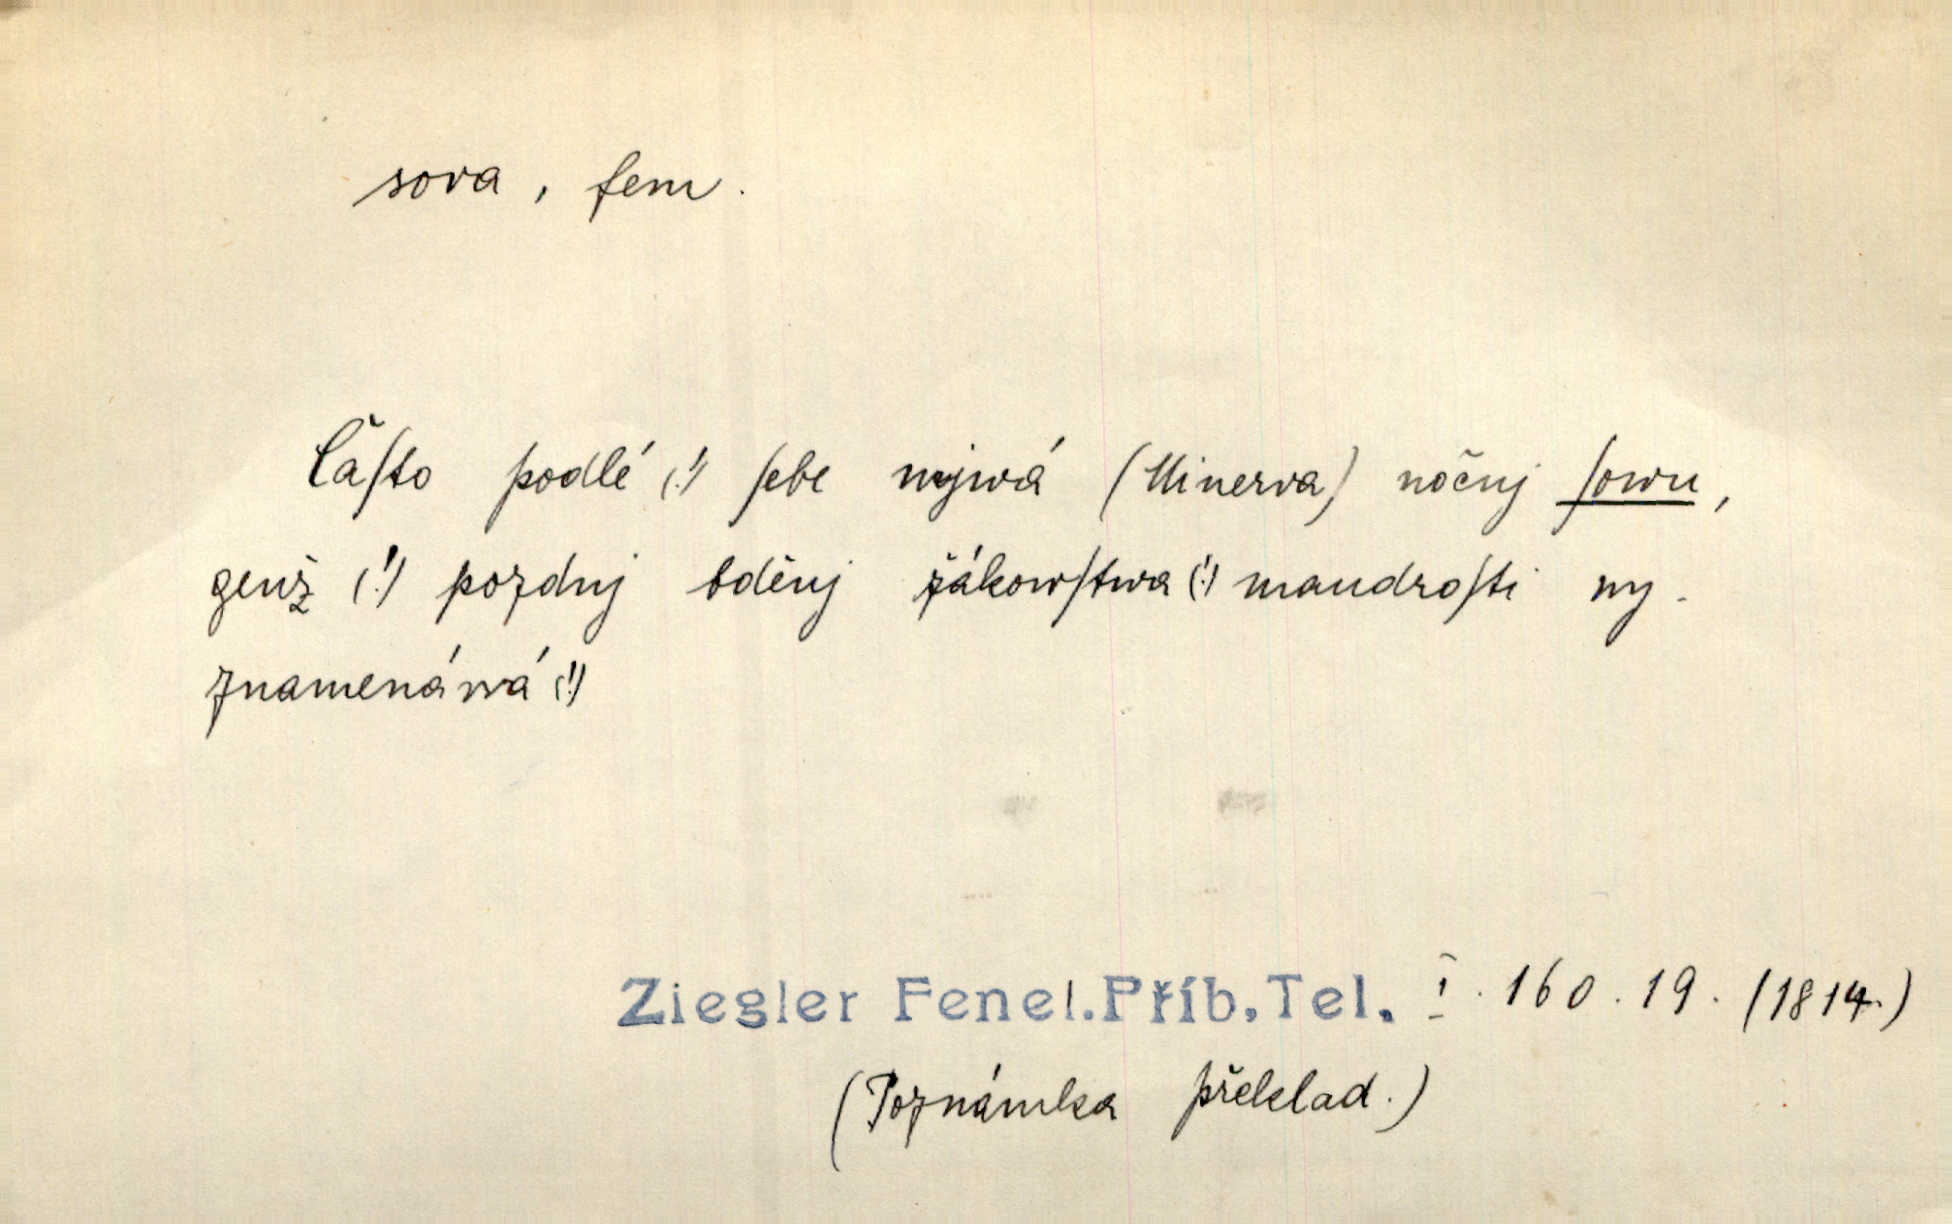 sova, fem.
Čaſto podlé (!) ſebe mjwá (Minerva) nočnj ſowu,
genž (!) pozdnj bděnj žákowſtwa (!) maudroſti wy-
znamenáwá (!)
Ziegler Fenel. Příb. Tel. I. 160. 19. (1814.)
(Poznámka překlad.)